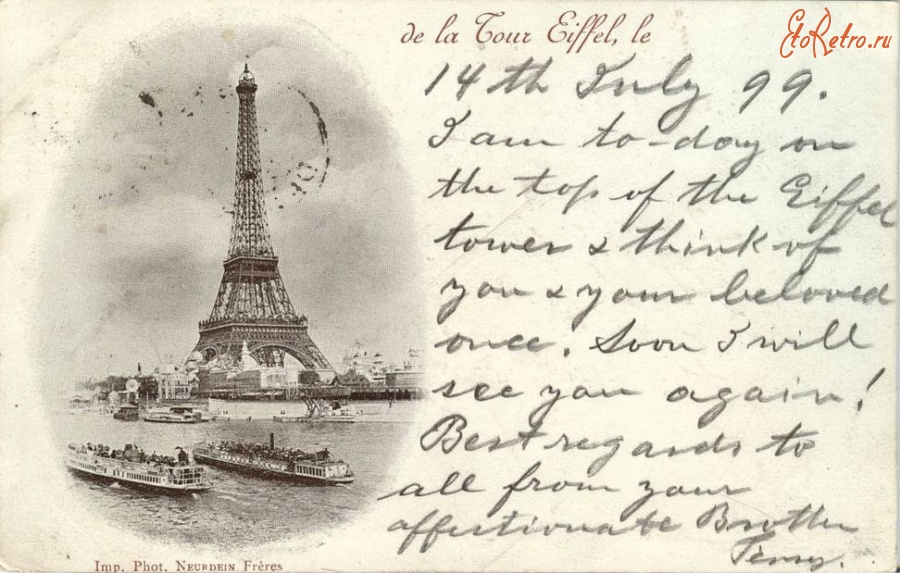 de la Tour Eiffel, le
EtoRetro.ru
14th July 99.
I am to-day on
the top of the Eiffel
tower & think of
you & your beloved
once. Soon I will
see you again!
Best regards to
all from your
affectionate Brother
Imp. Phot. NEURDEIN Frères